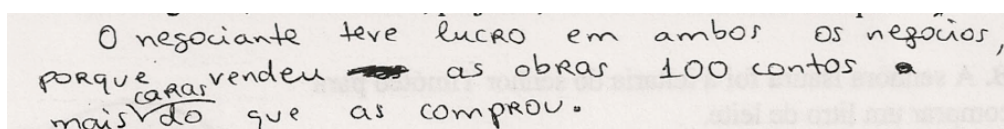 O negociante teve lucro em ambos os negócios,
porque vendeu as obras 100 contos
mais caras do que as comprou.